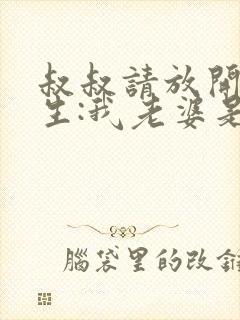 叔叔請放開
生:我老婆是
腦袋里的改